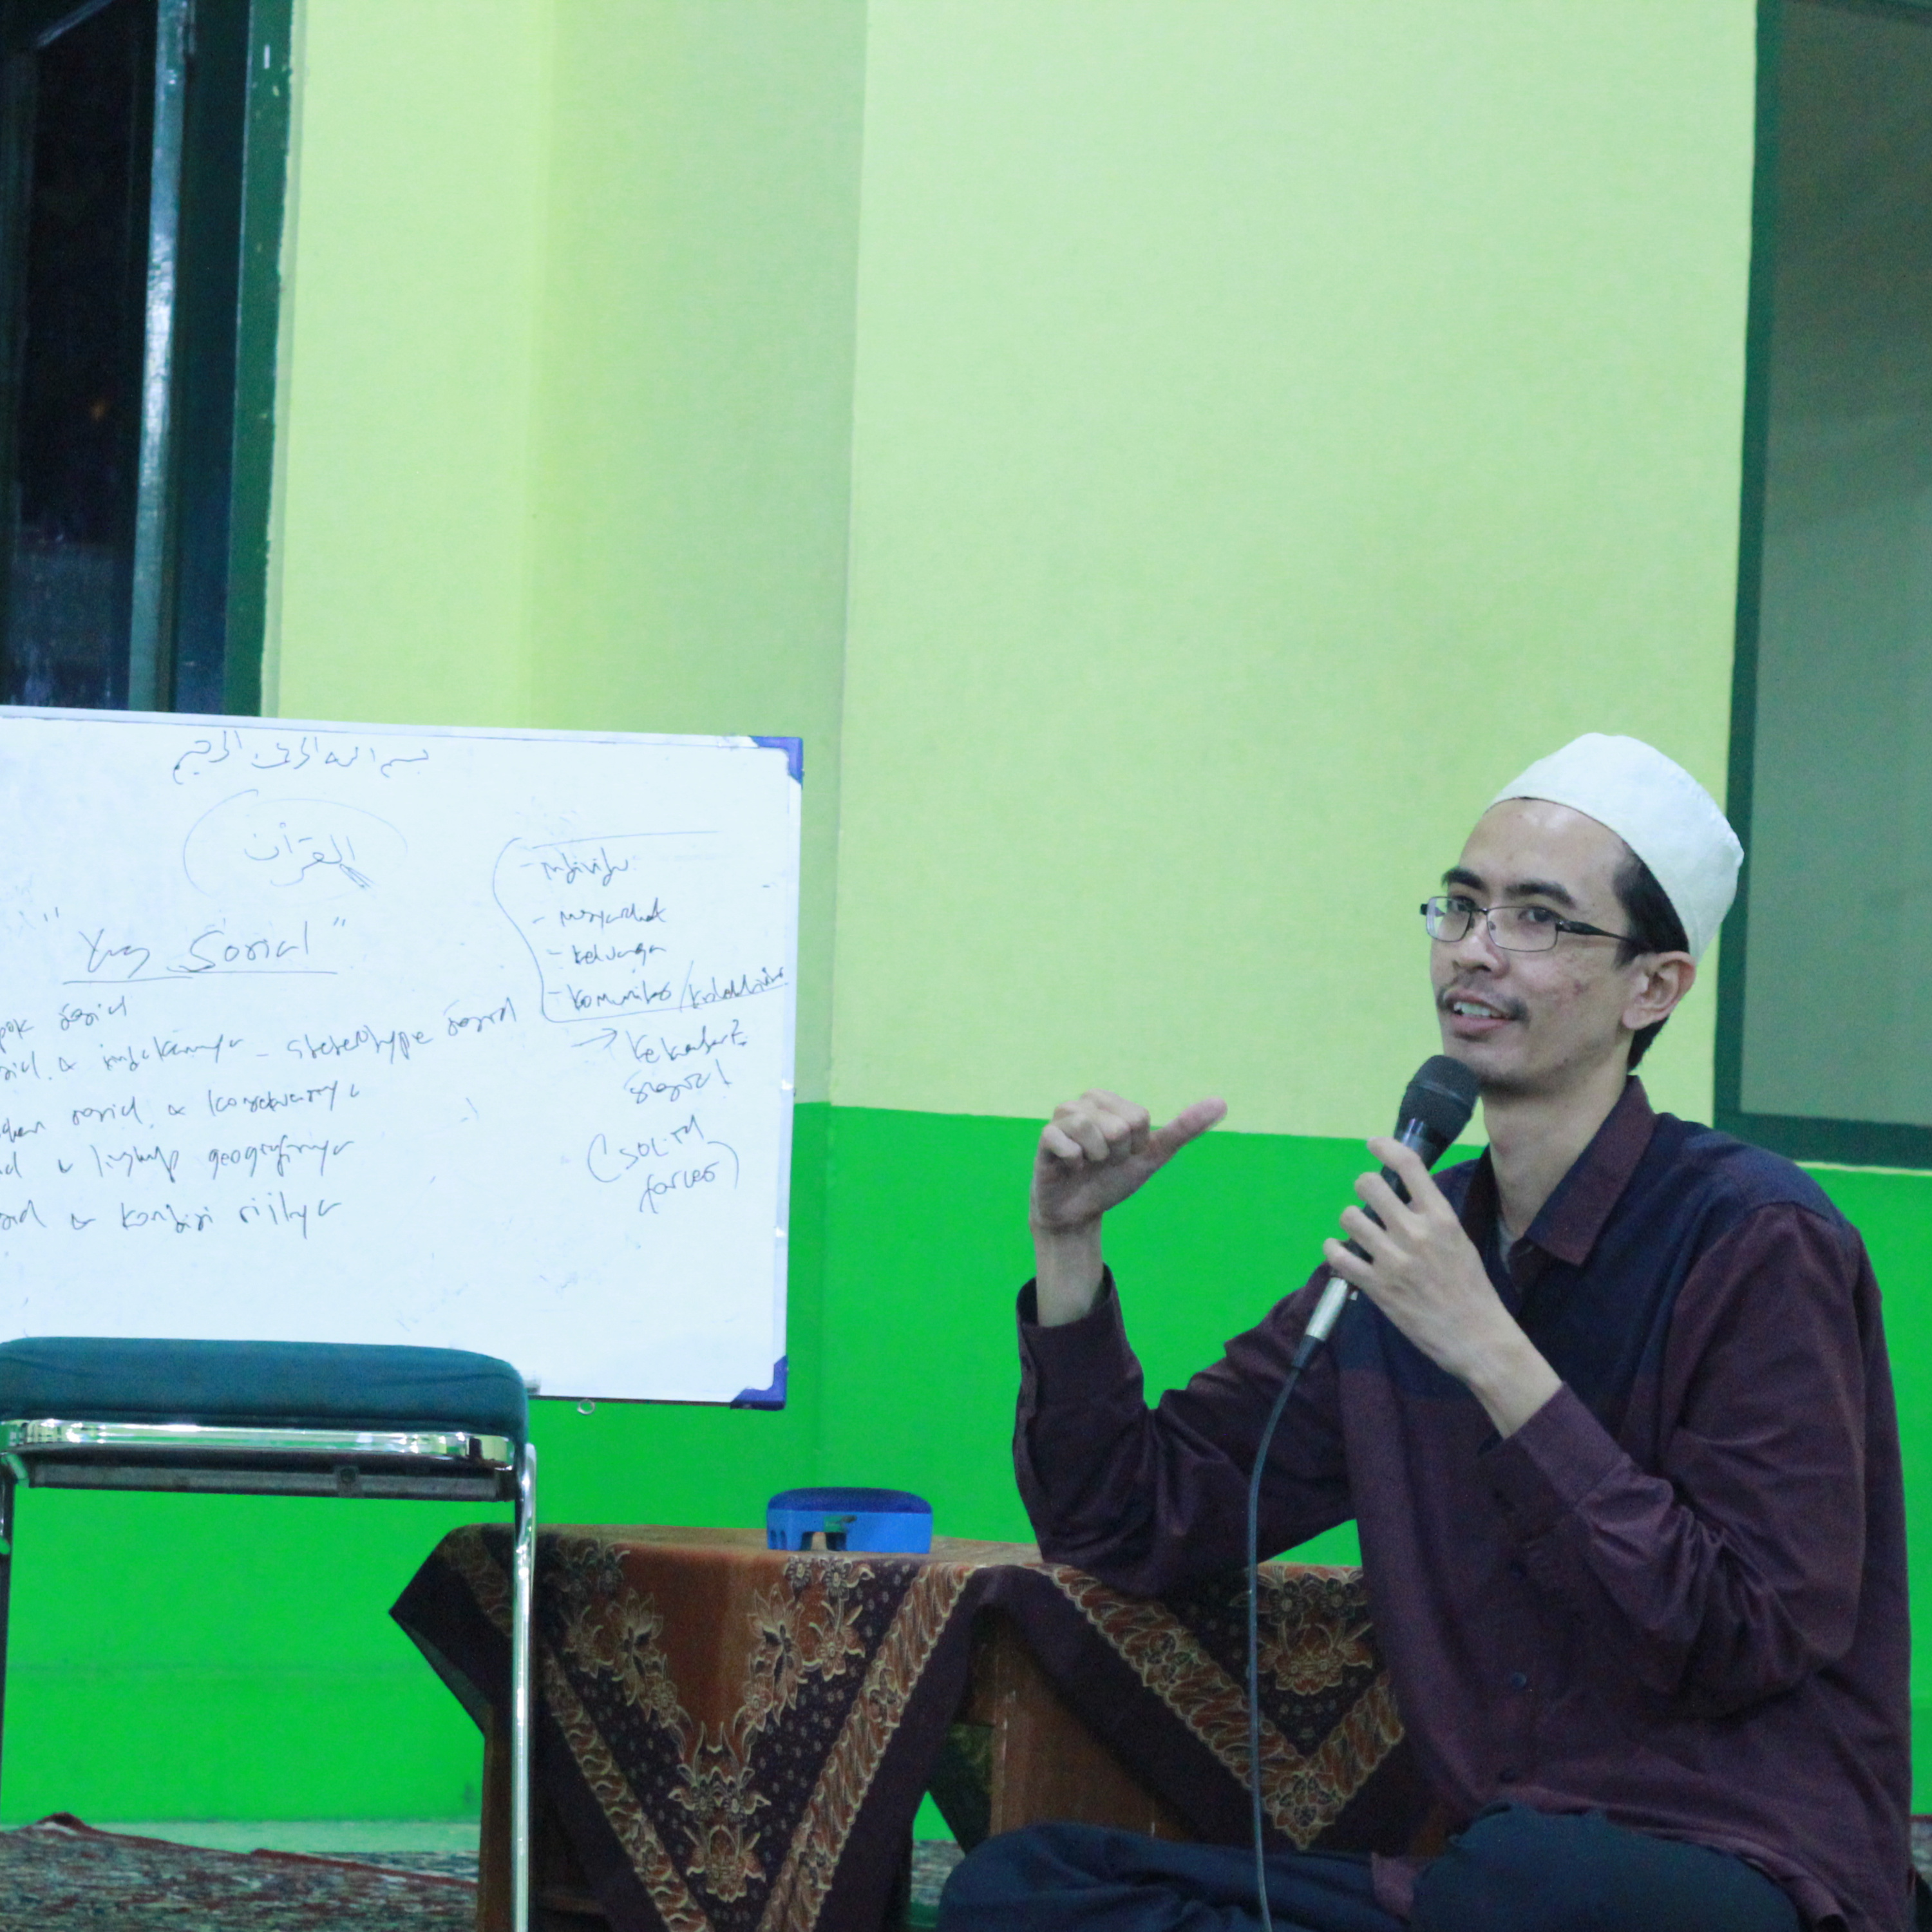 بسم الله الرحمن الرحيم
القرآن
"Yng Sosial"
sosial
- stereotype sosial
sosial & konsekuensinya
& lingkup geografisnya
& kondisi riilnya
- individu
- masyarakat
- keluarga
- komunitas/kolektivitas
→ kekuatan²
sosial
(social
forces)